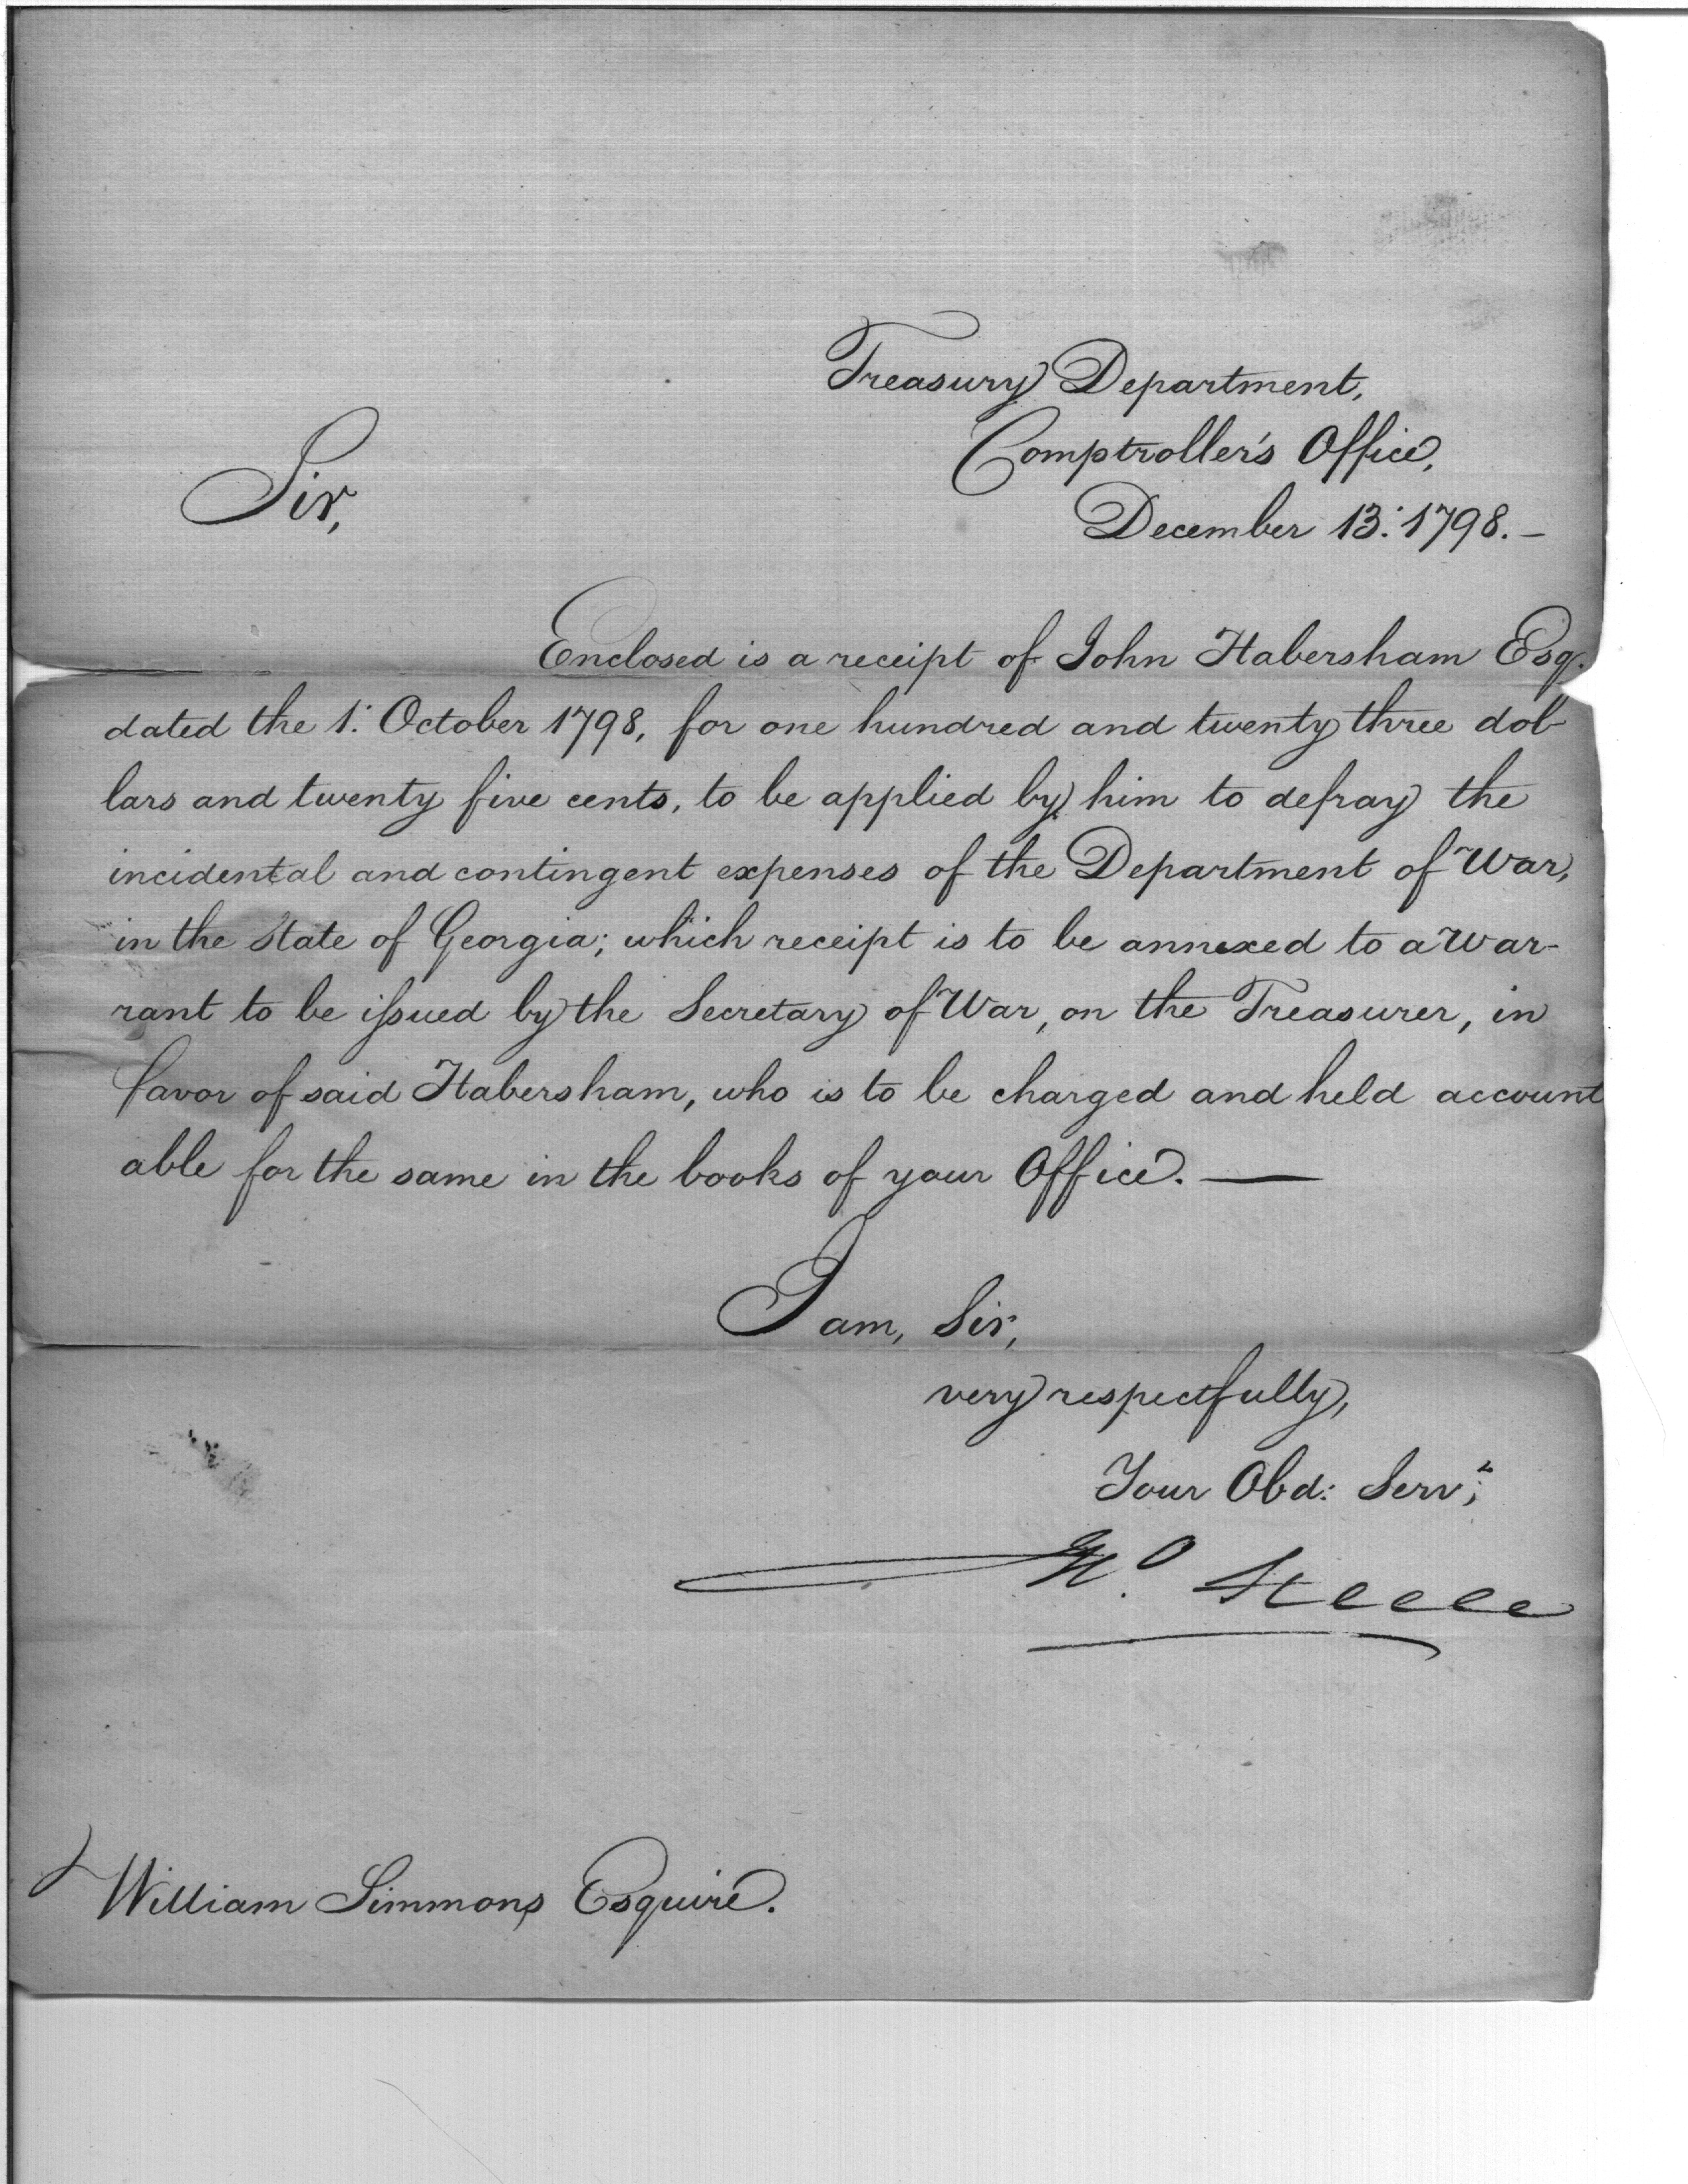 Treasury Department,
Comptroller's Office,
Sir,
December 13: 1798. –
Enclosed is a receipt of John Habersham Esq.
dated the 1: October 1798, for one hundred and twenty three dol-
lars and twenty five cents, to be applied by him to defray the
incidental and contingent expenses of the Department of War,
in the State of Georgia; which receipt is to be annexed to a War-
rant to be issued by the Secretary of War, on the Treasurer, in
favor of said Habersham, who is to be charged and held account
able for the same in the books of your Office. —
I am, Sir,
very respectfully,
Your Obd: Servt;
Jno. Steele
William Simmons Esquire.